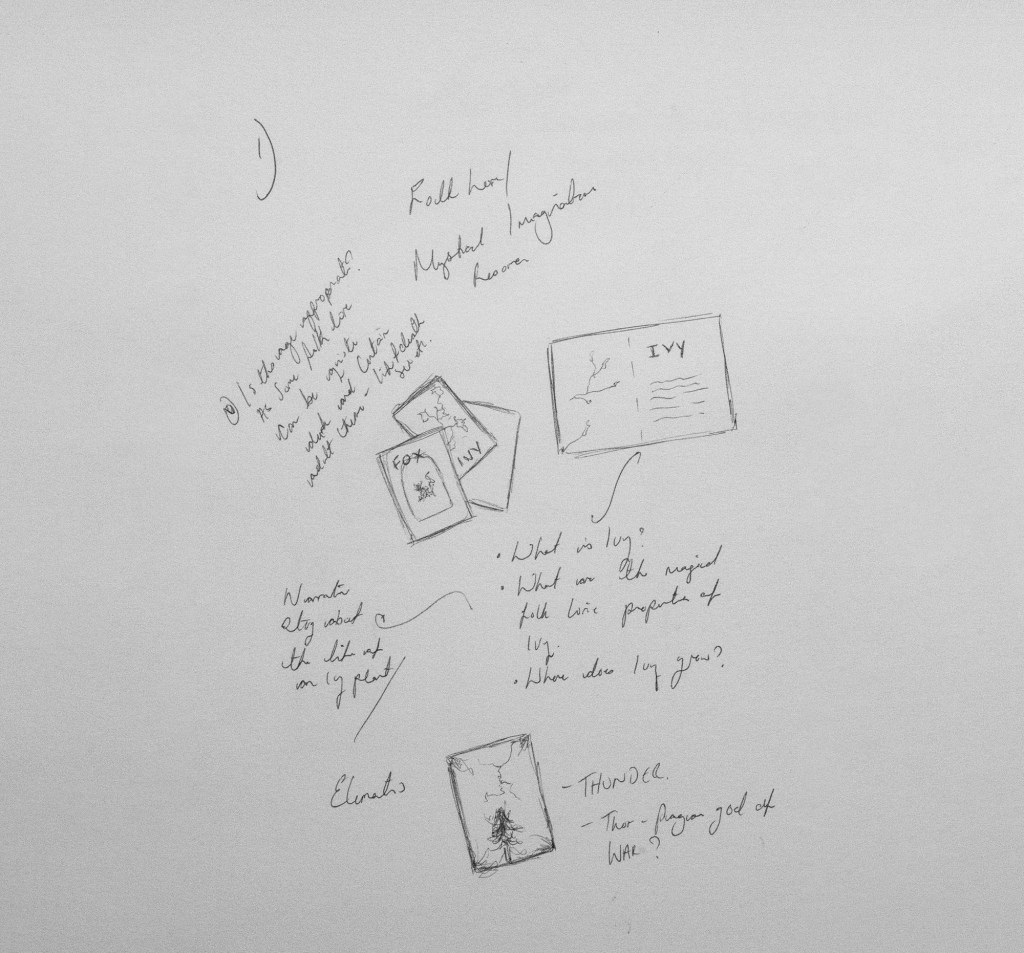 1)
Folk Lore/
Mystical Imagination
Is the age appropriate?
As Some folk lore
can be quite
dark and Contain
adult themes - like death
FOX
IVY
IVY
• What is Ivy?
• What are the magical
folk loric properties of
Ivy.
• Where does Ivy grow?
Narrative
Story about
the life of
an Ivy plant
Elements
- THUNDER.
- Thor - Pagan god of
WAR?